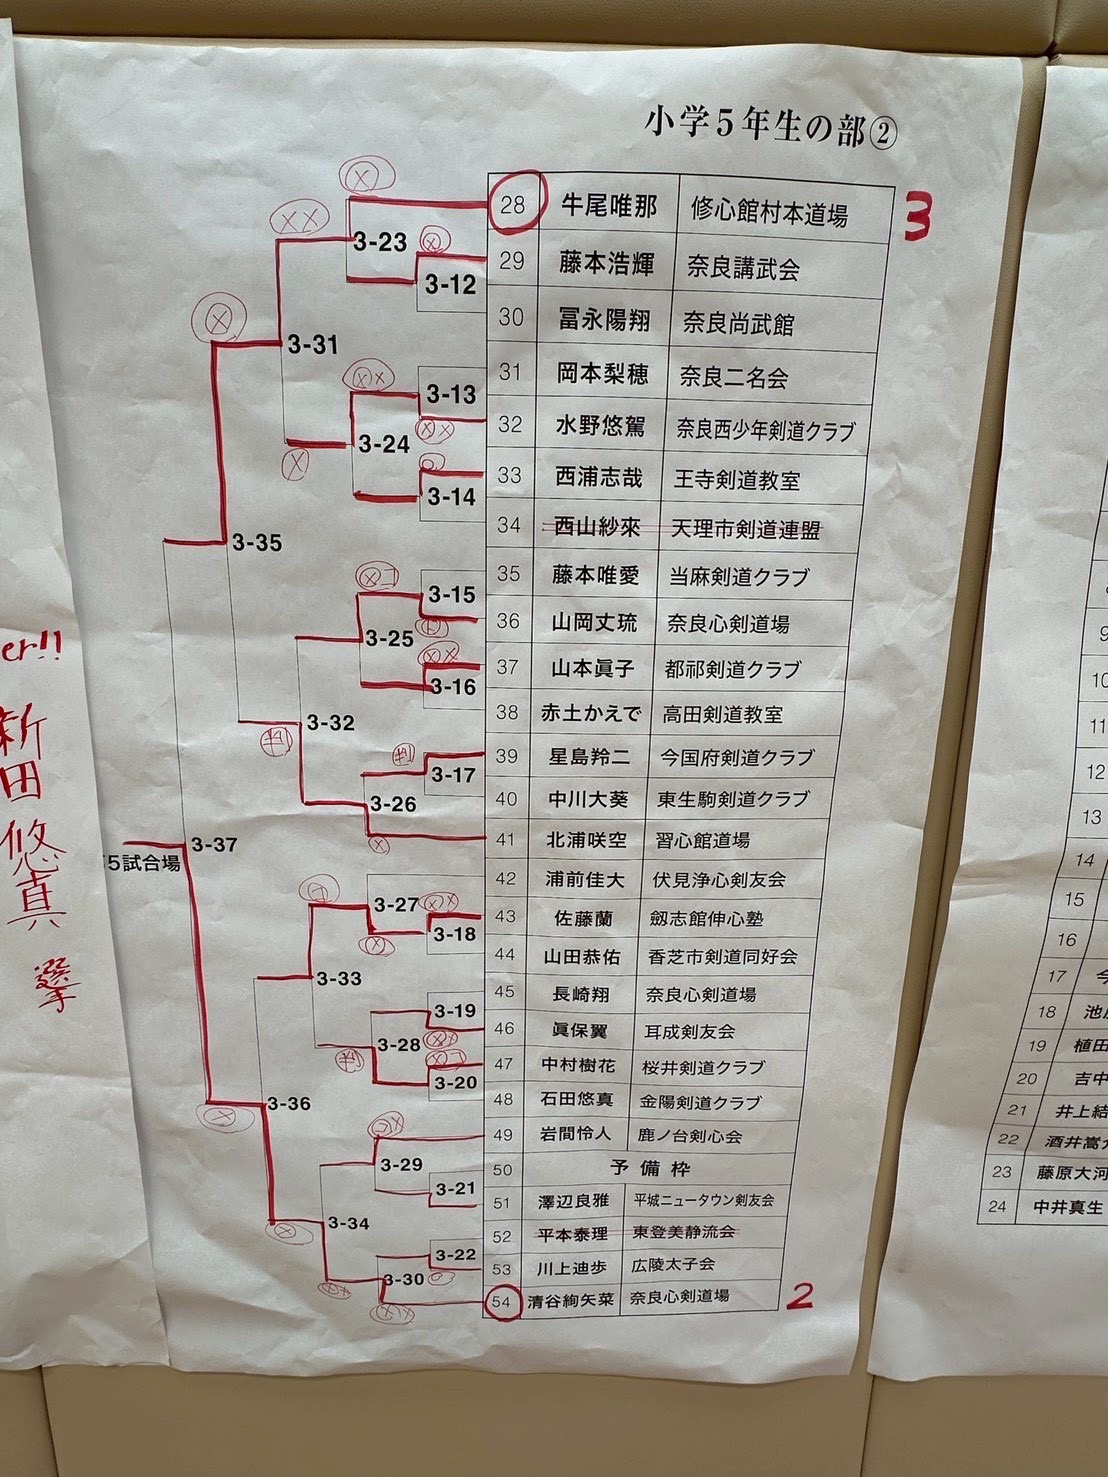 小学5年生の部②
28 牛尾唯那 修心館村本道場 3
29 藤本浩輝 奈良講武会
30 冨永陽翔 奈良尚武館
31 岡本梨穂 奈良二名会
32 水野悠駕 奈良西少年剣道クラブ
33 西浦志哉 王寺剣道教室
34 西山紗來 天理市剣道連盟
35 藤本唯愛 当麻剣道クラブ
36 山岡丈琉 奈良心剣道場
37 山本眞子 都祁剣道クラブ
38 赤土かえで 高田剣道教室
39 星島羚二 今国府剣道クラブ
40 中川大葵 東生駒剣道クラブ
41 北浦咲空 習心館道場
42 浦前佳大 伏見浄心剣友会
43 佐藤蘭 劔志館伸心塾
44 山田恭佑 香芝市剣道同好会
45 長崎翔 奈良心剣道場
46 眞保翼 耳成剣友会
47 中村樹花 桜井剣道クラブ
48 石田悠真 金陽剣道クラブ
49 岩間怜人 鹿ノ台剣心会
50 予備枠
51 澤辺良雅 平城ニュータウン剣友会
52 平本泰理 東登美静流会
53 川上迪歩 広陵太子会
54 清谷絢矢菜 奈良心剣道場 2
3-23
3-12
3-31
3-13
3-24
3-14
3-35
3-15
3-25
3-16
3-32
3-17
3-26
3-37
5試合場
3-27
3-18
3-33
3-19
3-28
3-20
3-36
3-29
3-21
3-34
3-22
3-30
er!!
新田
悠真
選手
9
10
11
12
13
14
15
16
17 今
18 池
19 植田
20 吉中
21 井上結
22 酒井嵩
23 藤原大河
24 中井真生